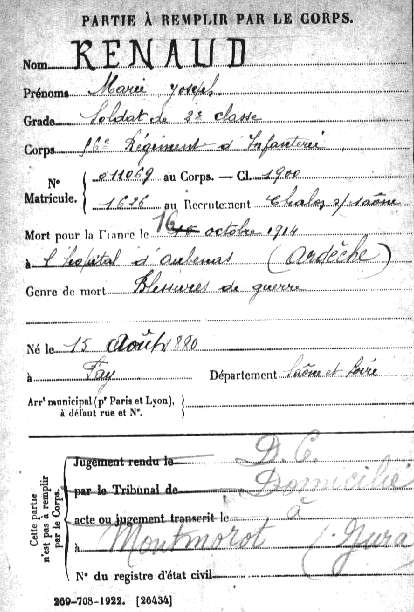 PARTIE À REMPLIR PAR LE CORPS.
Nom RENAUD
Prénoms Marie Joseph
Grade Soldat de 2e classe
Corps Régiment d'Infanterie
N° Matricule. { 011069 au Corps. — Cl. 1900
1626 au Recrutement Chalon s/ Saône
Mort pour la France le 16 octobre 1914
à l'hôpital d'Aubenas (Ardèche)
Genre de mort Blessures de guerre
Né le 15 Août 1880
à Fay Département Saône et Loire
Arrt municipal (pr Paris et Lyon), à défaut rue et N°.
Cette partie n'est pas à remplir par le Corps.
Jugement rendu le D.C.
par le Tribunal de Domicilié
acte ou jugement transcrit le à
à Montmorot (Jura)
N° du registre d'état civil
269-708-1922. [26434]